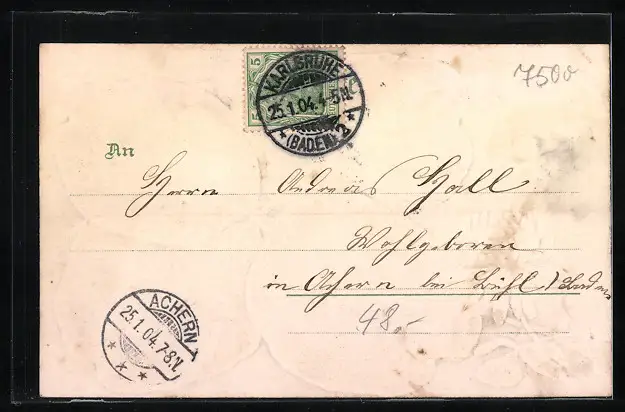 7500
5
KARLSRUHE
25.1.04.4-5N.
* (BADEN) 2 *
An
Herrn Andreas Hall
Wohlgeboren
in Achern bei Bühl, Baden
48,-
ACHERN
25.1.04.7-8N.
* * *